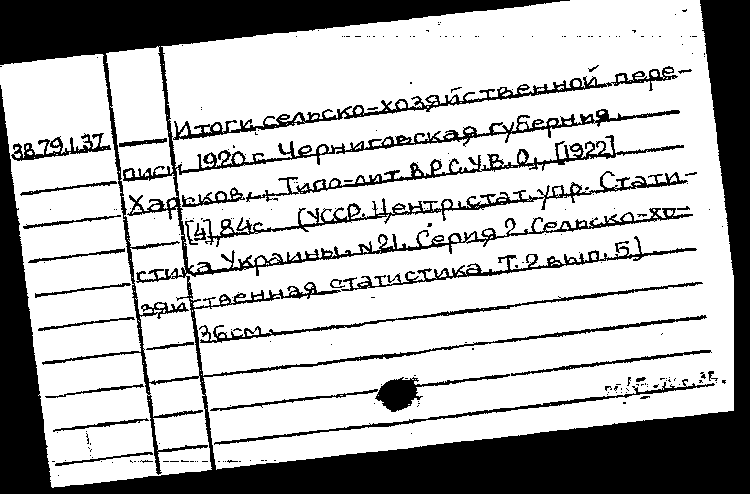 38.79.1.37
Итоги сельско-хозяйственной пере-
писи 1920 г. Черниговская губерния.
Харьков, Типо-лит. В.Р.С.У.В.О., [1922]
[4], 84с. (УССР. Центр. стат. упр. Стати-
стика Украины. N21. Серия 2. Сельско-хо-
зяйственная статистика. Т.2 вып. 5)
36см.